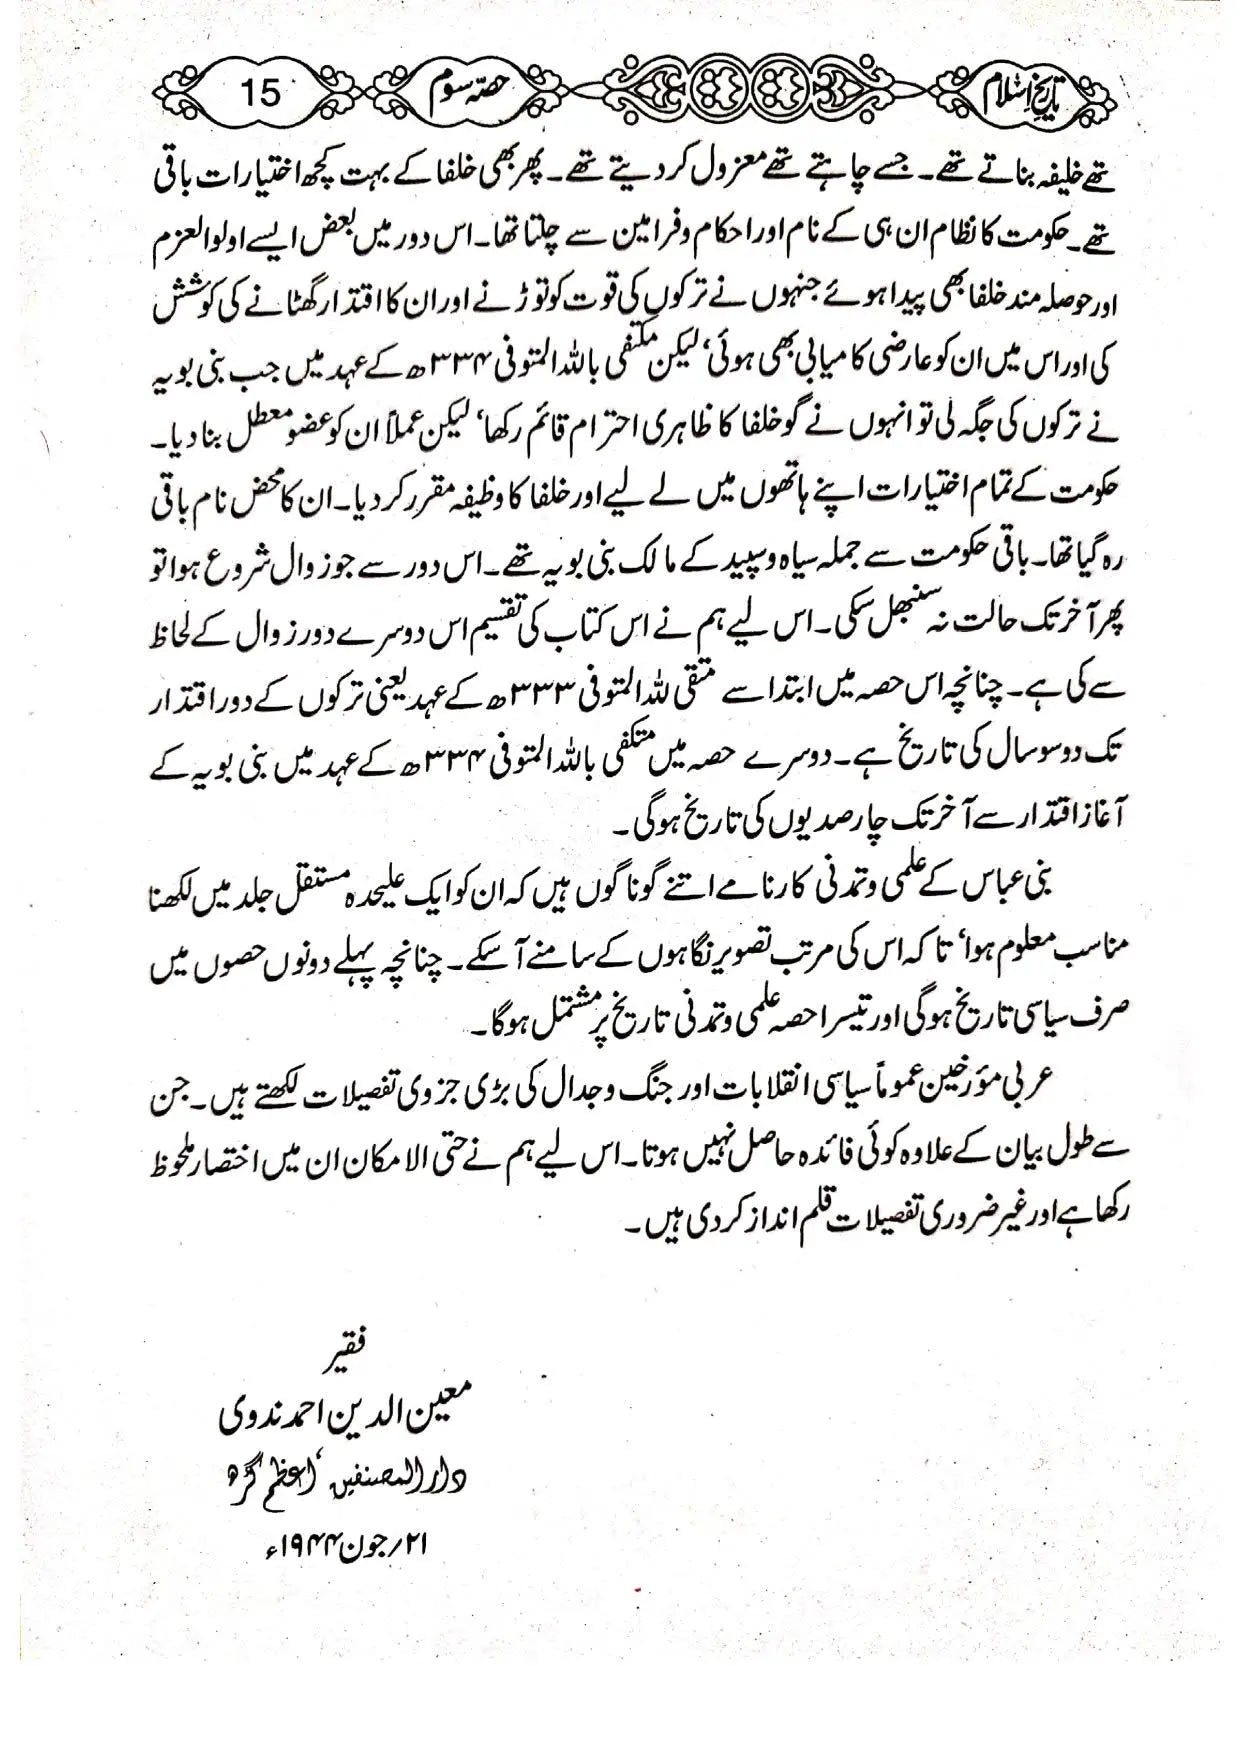 تاریخ اسلام حصہ سوم 15
تھے خلیفہ بناتے تھے۔ جسے چاہتے تھے معزول کر دیتے تھے۔ پھر بھی خلفا کے بہت کچھ اختیارات باقی
تھے۔ حکومت کا نظام ان ہی کے نام اور احکام و فرامین سے چلتا تھا۔ اس دور میں بعض ایسے اولوالعزم
اور حوصلہ مند خلفا بھی پیدا ہوئے جنہوں نے ترکوں کی قوت کو توڑنے اور ان کا اقتدار گھٹانے کی کوشش
کی اور اس میں ان کو عارضی کامیابی بھی ہوئی‘ لیکن مکتفی باللہ المتوفی ۳۳۴ھ کے عہد میں جب بنی بویہ
نے ترکوں کی جگہ لی تو انہوں نے گو خلفا کا ظاہری احترام قائم رکھا‘ لیکن عملاً ان کو عضو معطل بنا دیا۔
حکومت کے تمام اختیارات اپنے ہاتھوں میں لے لیے اور خلفا کا وظیفہ مقرر کر دیا۔ ان کا محض نام باقی
رہ گیا تھا۔ باقی حکومت سے جملہ سیاہ و سپید کے مالک بنی بویہ تھے۔ اس دور سے جو زوال شروع ہوا تو
پھر آخر تک حالت نہ سنبھل سکی۔ اس لیے ہم نے اس کتاب کی تقسیم اس دوسرے دور زوال کے لحاظ
سے کی ہے۔ چنانچہ اس حصہ میں ابتدا سے متقی للہ المتوفی ۳۳۳ھ کے عہد یعنی ترکوں کے دور اقتدار
تک دو سو سال کی تاریخ ہے۔ دوسرے حصہ میں متکفی باللہ المتوفی ۳۳۴ھ کے عہد میں بنی بویہ کے
آغاز اقتدار سے آخر تک چار صدیوں کی تاریخ ہوگی۔
بنی عباس کے علمی و تمدنی کارنامے اتنے گوناگوں ہیں کہ ان کو ایک علیحدہ مستقل جلد میں لکھنا
مناسب معلوم ہوا‘ تا کہ اس کی مرتب تصویر نگاہوں کے سامنے آ سکے۔ چنانچہ پہلے دونوں حصوں میں
صرف سیاسی تاریخ ہوگی اور تیسرا حصہ علمی و تمدنی تاریخ پر مشتمل ہوگا۔
عربی مؤرخین عموماً سیاسی انقلابات اور جنگ و جدال کی بڑی جزوی تفصیلات لکھتے ہیں۔ جن
سے طول بیان کے علاوہ کوئی فائدہ حاصل نہیں ہوتا۔ اس لیے ہم نے حتی الامکان ان میں اختصار ملحوظ
رکھا ہے اور غیر ضروری تفصیلات قلم انداز کر دی ہیں۔
فقیر
معین الدین احمد ندوی
دارالمصنفین‘ اعظم گڑھ
۲۱/ جون ۱۹۴۴ء